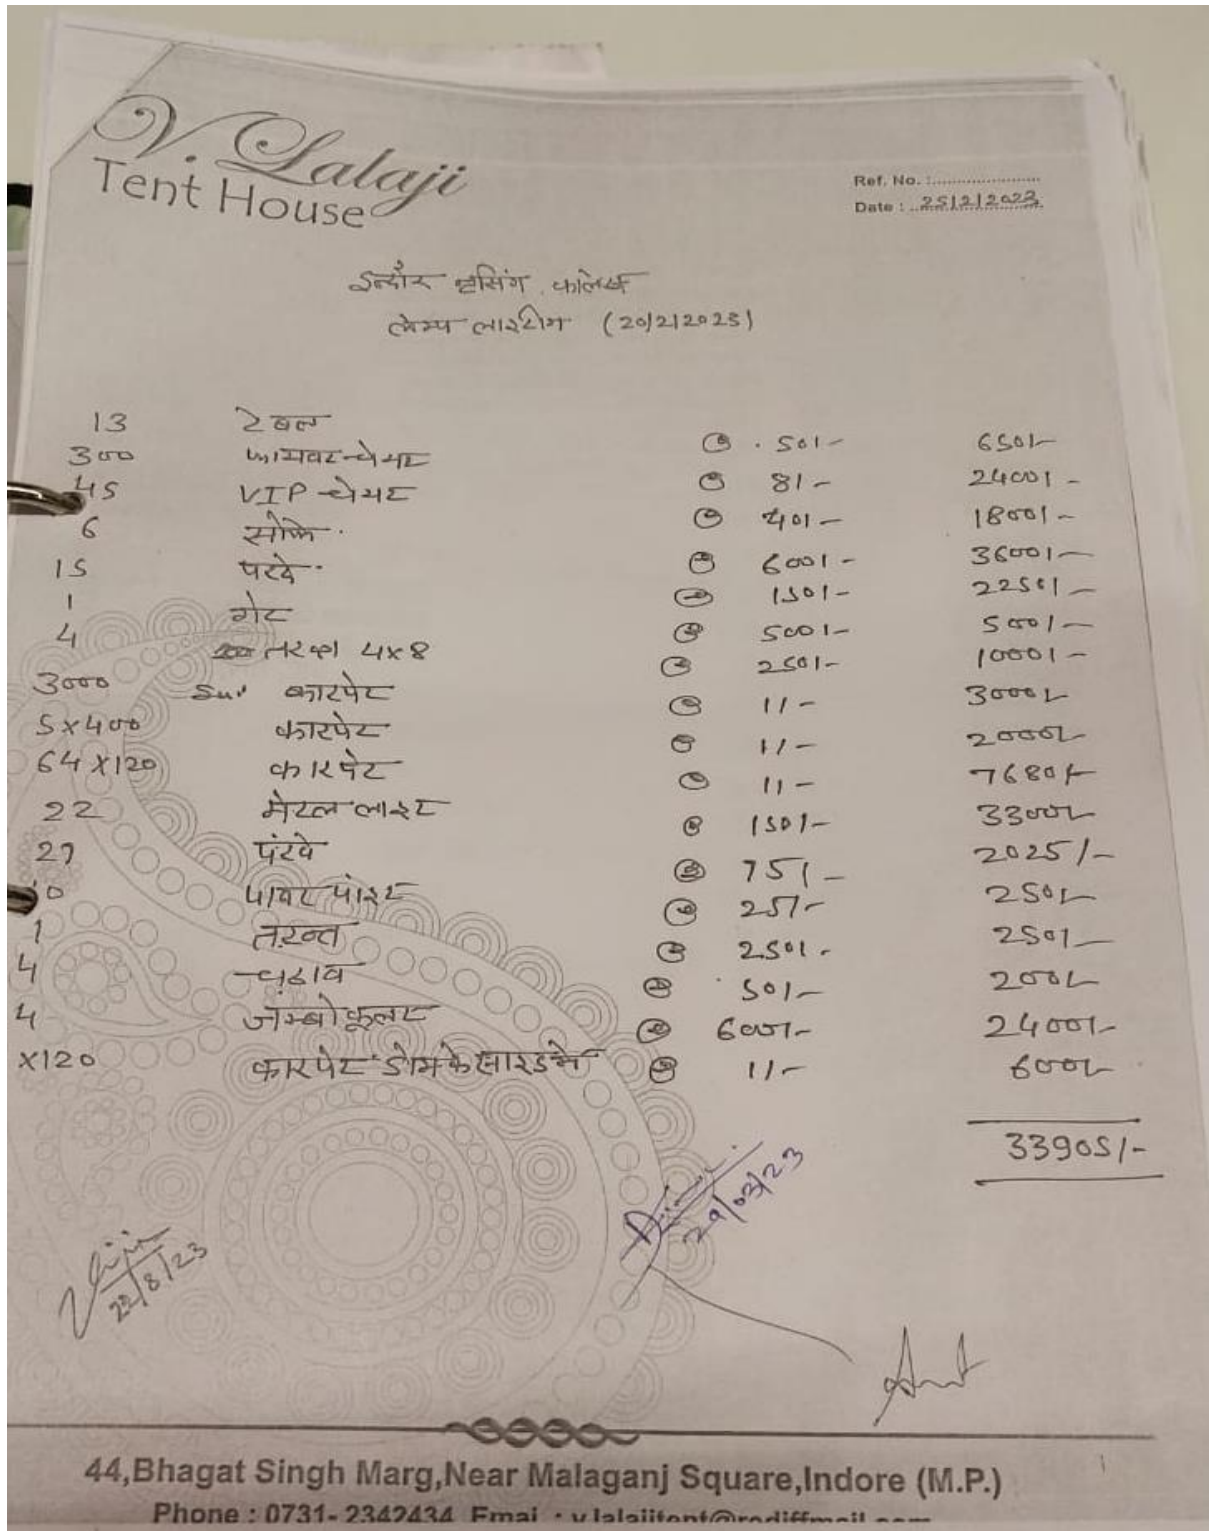 V. Lalaji
Tent House
Ref. No. :
Date : 25/2/2023
इन्दौर नर्सिंग कालेज
लेम्प लाइटिंग (20/2/2023)
13 टेबल @ 50/- 650/-
300 फायबर चेयर @ 8/- 2400/-
45 VIP चेयर @ 40/- 1800/-
6 सोफे @ 600/- 3600/-
15 परदे @ 150/- 2250/-
1 गेट @ 500/- 500/-
4 तख्त 4x8 @ 250/- 1000/-
3000 कारपेट @ 1/- 3000/-
5x400 कारपेट @ 1/- 2000/-
64x120 कारपेट @ 1/- 7680/-
22 मेटल लाइट @ 150/- 3300/-
27 पंखे @ 75/- 2025/-
10 पावर पांइट @ 25/- 250/-
1 तख्त @ 250/- 250/-
4 चढ़ाव @ 50/- 200/-
4 जम्बो कूलर @ 600/- 2400/-
x120 कारपेट डोम के साइड में @ 1/- 600/-
33905/-
29/03/23
22/8/23
44,Bhagat Singh Marg,Near Malaganj Square,Indore (M.P.)
Phone : 0731- 2342434 Emai : v.lalajitent@rediffmail.com